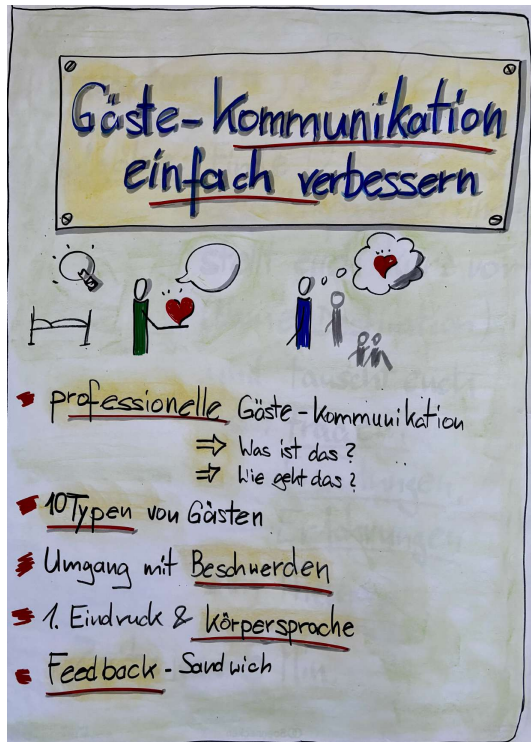 Gäste-Kommunikation
einfach verbessern
professionelle Gäste-Kommunikation
⇒ Was ist das?
⇒ Wie geht das?
10 Typen von Gästen
Umgang mit Beschwerden
1. Eindruck & Körpersprache
Feedback-Sandwich